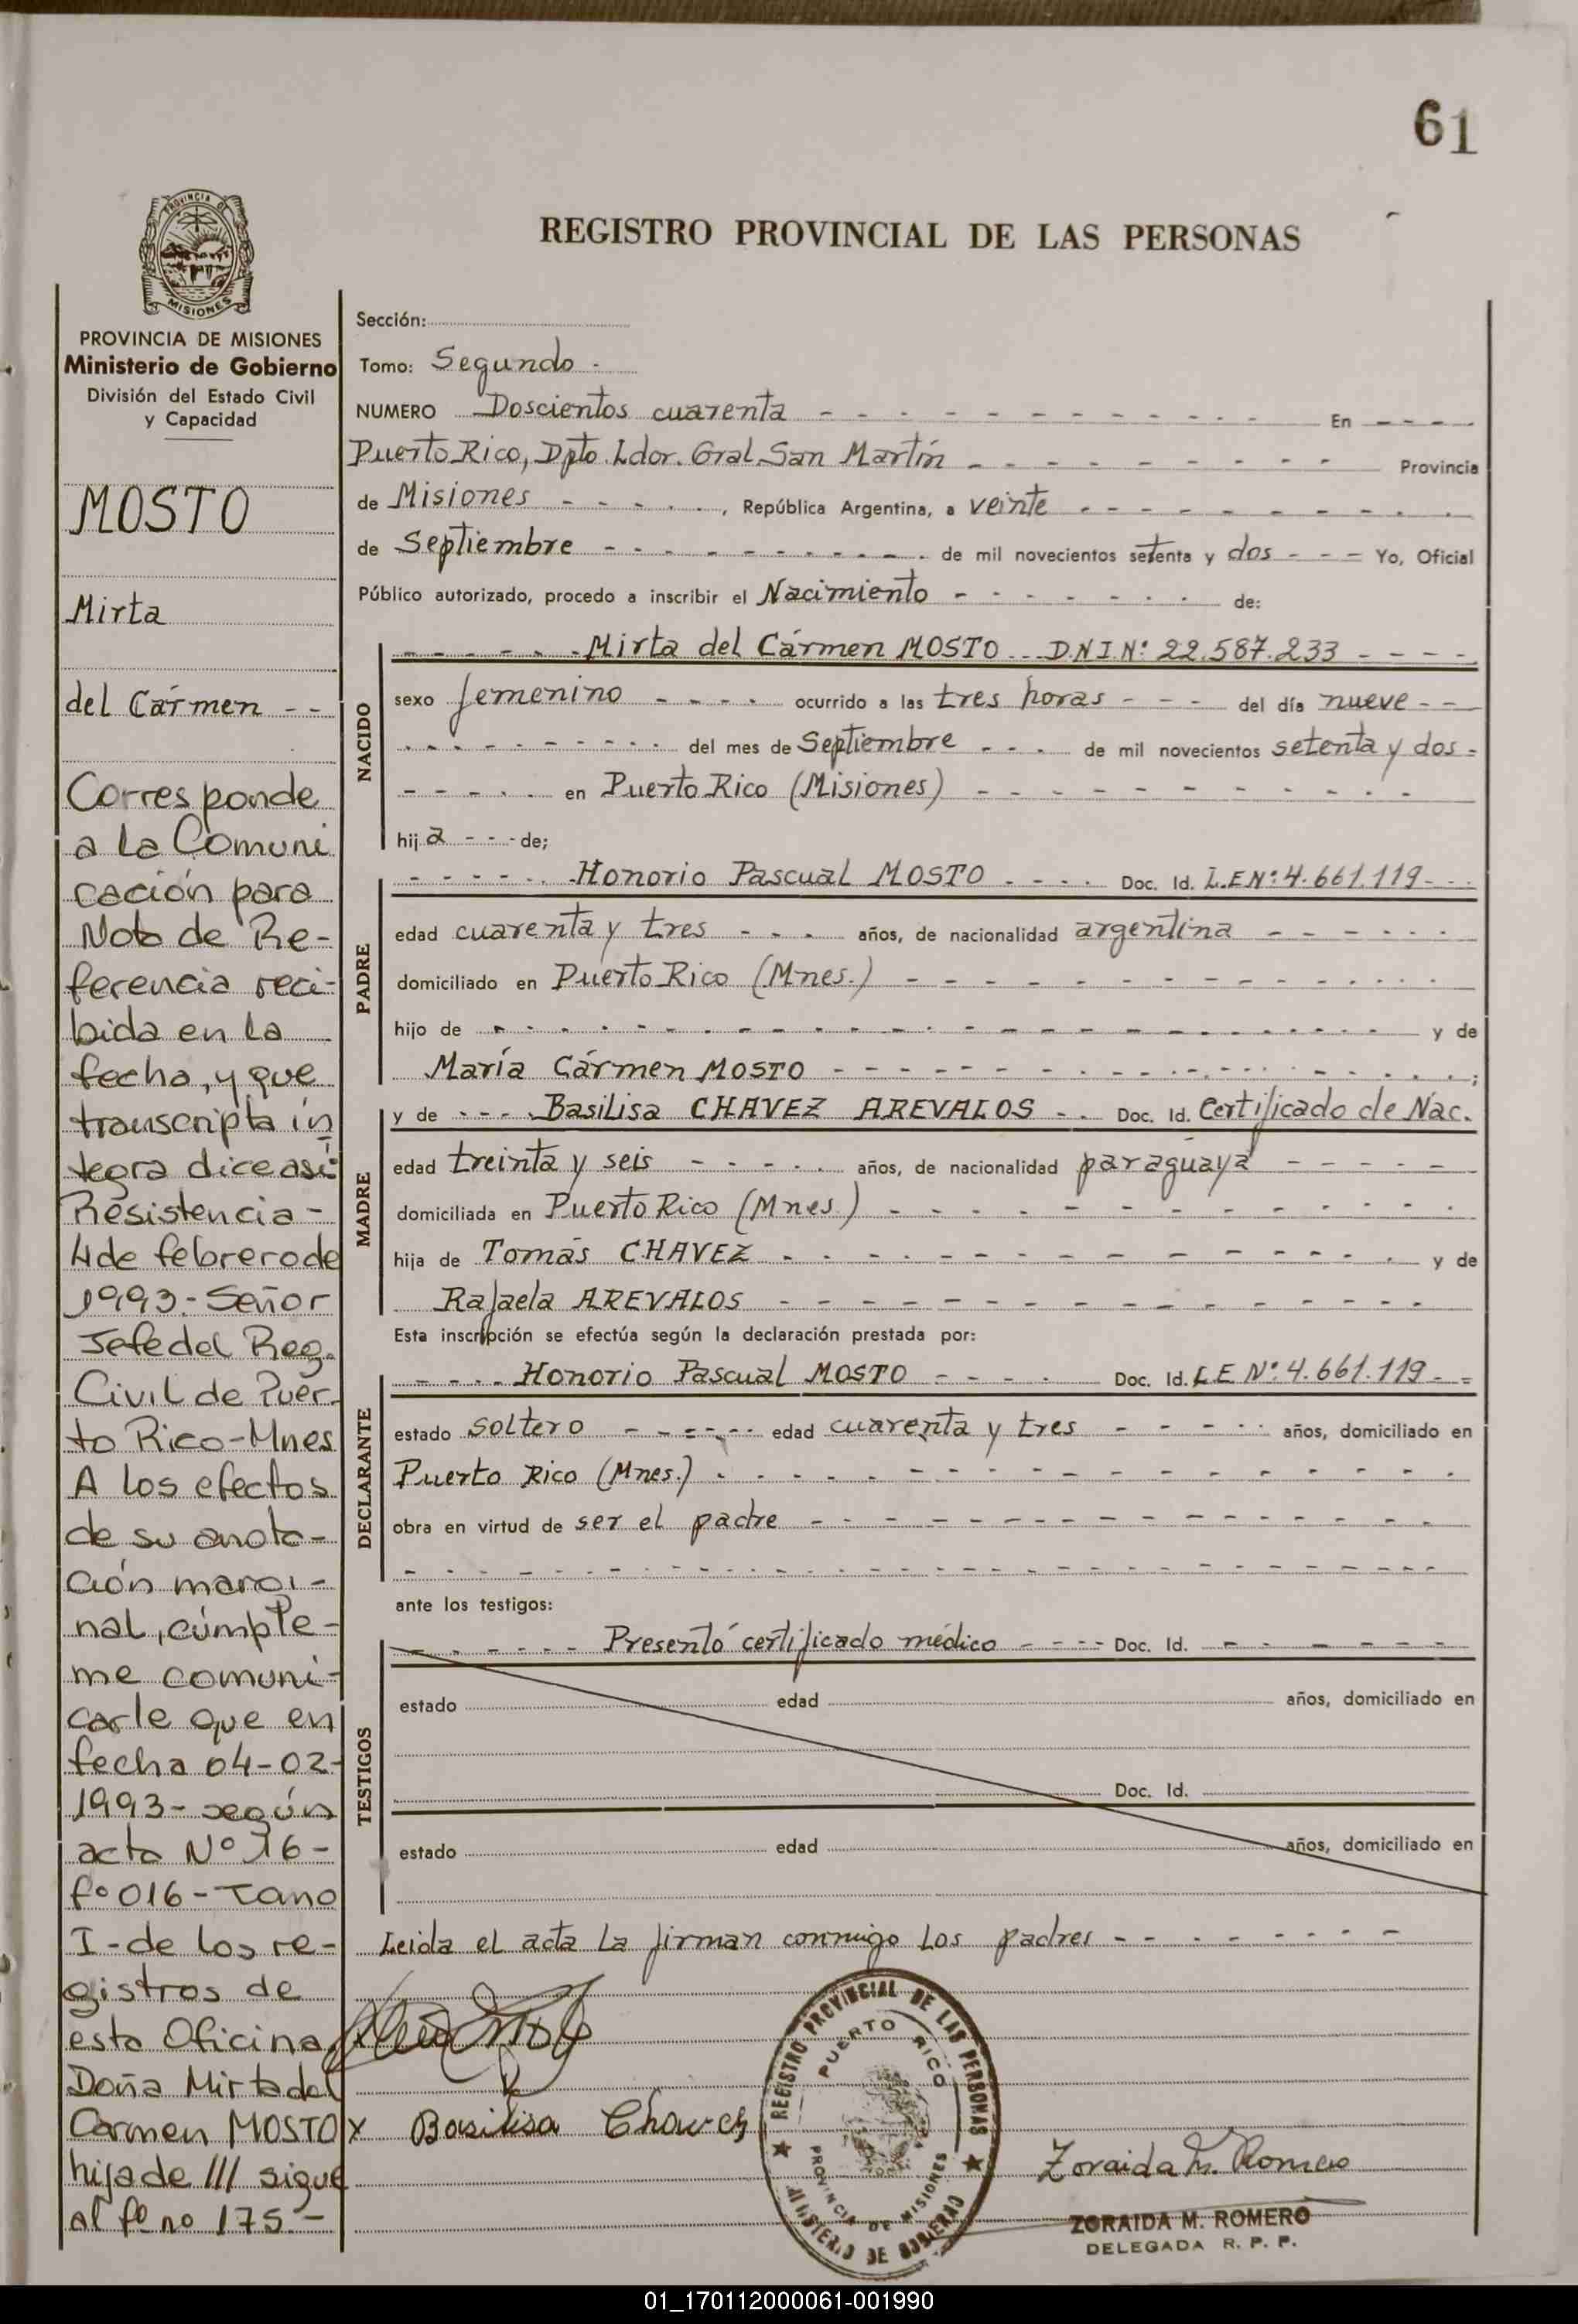 61
PROVINCIA DE
MISIONES
REGISTRO PROVINCIAL DE LAS PERSONAS
PROVINCIA DE MISIONES
Ministerio de Gobierno
División del Estado Civil
y Capacidad
MOSTO
Mirta
del Cármen - -
Corresponde
a la Comuni
cación para
Nota de Re-
ferencia reci-
bida en la
fecha, y que
transcripta ín
tegra dice así:
Resistencia -
4 de febrero de
1993.- Señor
Jefe del Reg.
Civil de Puer-
to Rico - Mnes
A los efectos
de su anota-
ción margi-
nal, cúmple-
me comuni-
carle que en
fecha 04-02-
1993 - según
acta Nº 16 -
fº 016 - Tomo
I - de los re-
gistros de
esta Oficina,
Doña Mirta del
Carmen MOSTO
hija de /// sigue
al fº nº 175.-
Sección:
Tomo: Segundo -
NUMERO Doscientos cuarenta - - - En - - -
Puerto Rico, Dpto. Ldor. Gral. San Martín - - - Provincia
de Misiones - - -, República Argentina, a veinte - - -
de Septiembre - - - de mil novecientos setenta y dos - - - Yo, Oficial
Público autorizado, procedo a inscribir el Nacimiento - - - de:
NACIDO
- - - Mirta del Cármen MOSTO - - - D.N.I. Nº: 22.587.233 - - -
sexo femenino - - - ocurrido a las tres horas - - - del día nueve - -
- - - del mes de Septiembre - - - de mil novecientos setenta y dos -
- - - en Puerto Rico (Misiones) - - -
hija - - - de;
PADRE
- - - Honorio Pascual MOSTO - - - Doc. Id. L.E Nº: 4.661.119 - - -
edad cuarenta y tres - - - años, de nacionalidad argentina - - -
domiciliado en Puerto Rico (Mnes.) - - -
hijo de - - - y de
María Cármen MOSTO - - - ;
MADRE
y de - - - Basilisa CHAVEZ AREVALOS - - Doc. Id. Certificado de Nac.
edad treinta y seis - - - años, de nacionalidad paraguaya - - -
domiciliada en Puerto Rico (Mnes.) - - -
hija de Tomás CHAVEZ - - - y de
Rafaela AREVALOS - - -
Esta inscripción se efectúa según la declaración prestada por:
DECLARANTE
- - - Honorio Pascual MOSTO - - - Doc. Id. L E Nº: 4.661.119 - -
estado soltero - - - edad cuarenta y tres - - - años, domiciliado en
Puerto Rico (Mnes.) - - -
obra en virtud de ser el padre - - -
ante los testigos:
TESTIGOS
- - - Presentó certificado médico - - - Doc. Id. - - -
estado edad años, domiciliado en
Doc. Id.
estado edad años, domiciliado en
Leída el acta la firman conmigo los padres - - -
x Basilisa Chavez
REGISTRO PROVINCIAL DE LAS PERSONAS
PUERTO RICO
PROVINCIA DE MISIONES
MINISTERIO DE GOBIERNO
Zoraida M. Romero
ZORAIDA M. ROMERO
DELEGADA R. P. P.
01_170112000061-001990